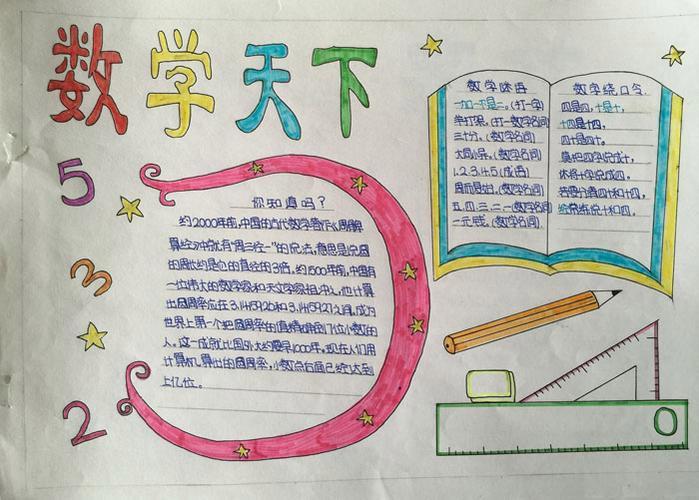 数学天下
5
3
2
你知道吗?
约2000年前,中国的古代数学著作《周髀
算经》中就有"周三径一"的说法,意思是说圆
的周长约是它的直径的3倍。约1500年前,中国有
一位伟大的数学家和天文学家祖冲之。他计算
出圆周率应在3.1415926和3.1415927之间,成为
世界上第一个把圆周率的值精确到7位小数的
人。这一成就比国外大约要早1000年。现在人们用
计算机算出的圆周率,小数点后面已经达到
上亿位。
数学谜语
一加一不是二。(打一字)
(打一数学名词)
三十分。(数学名词)
大同小异。(数学名词)
1、2、3、4、5(成语)
周而复始。(数学名词)
五、四、三、二、一(数学名词)
一元钱。(数学名词)
数学绕口令.
四是四,十是十,
十四是十四,
四十是四十。
莫把四字说成十,
休将十字说成四。
若要分清四和十四,
经常练说十和四。
0